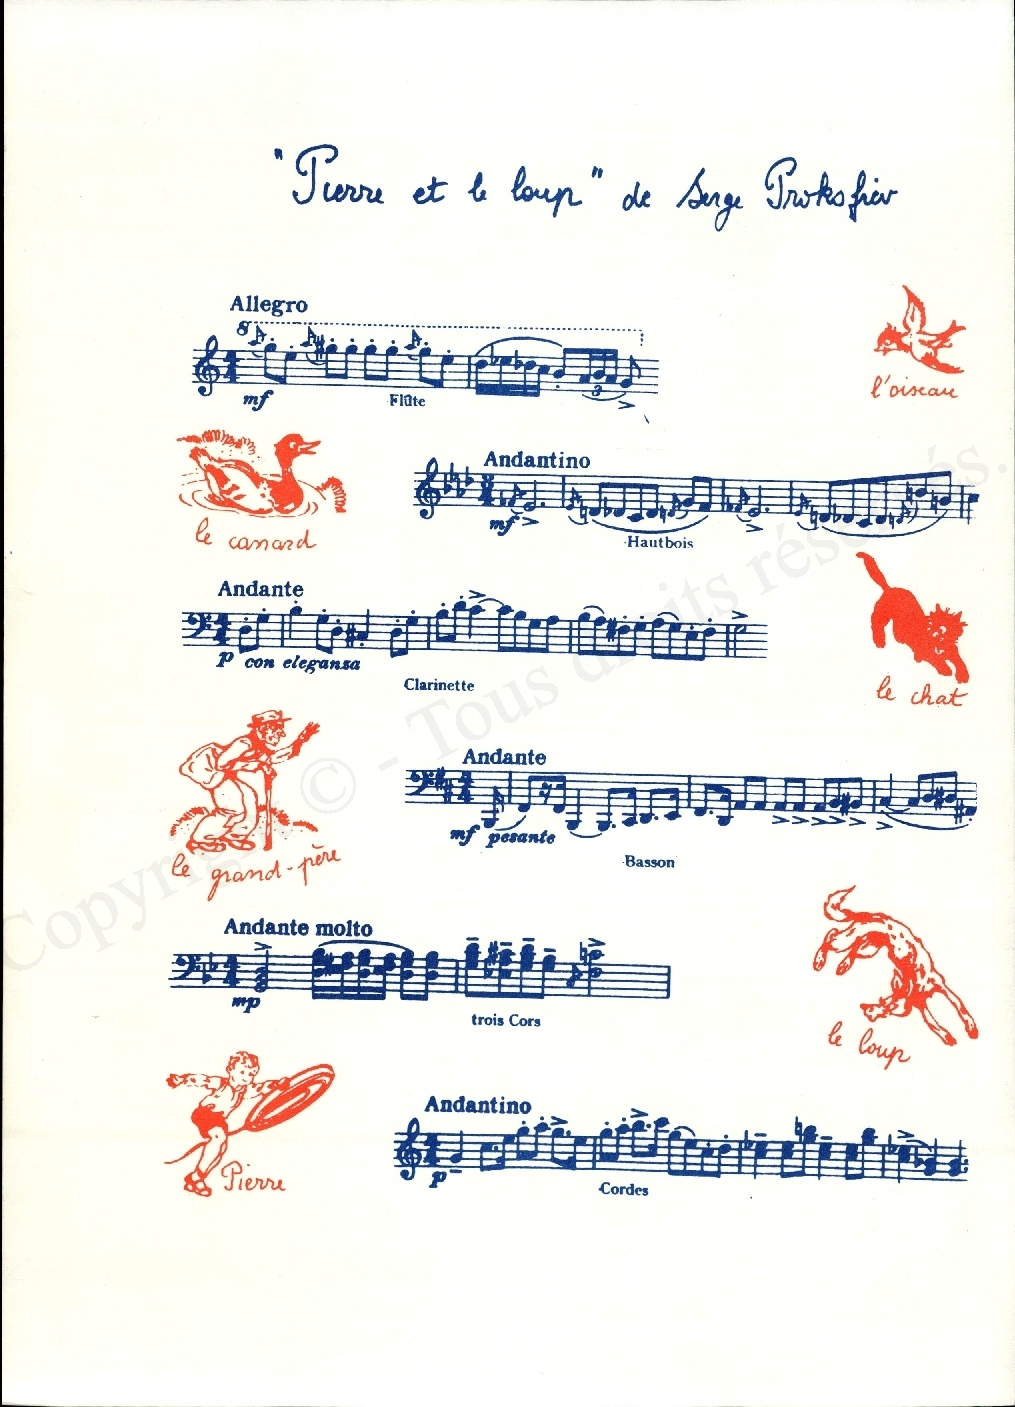 "Pierre et le loup" de Serge Prokofiev
Allegro
8
mf
Flûte
3
l'oiseau
le canard
Andantino
mf
Hautbois
Andante
p con eleganza
Clarinette
le chat
le grand-père
Andante
mf pesante
Basson
Andante molto
mp
trois Cors
le loup
Pierre
Andantino
p
Cordes
Copyright © - Tous droits réservés.